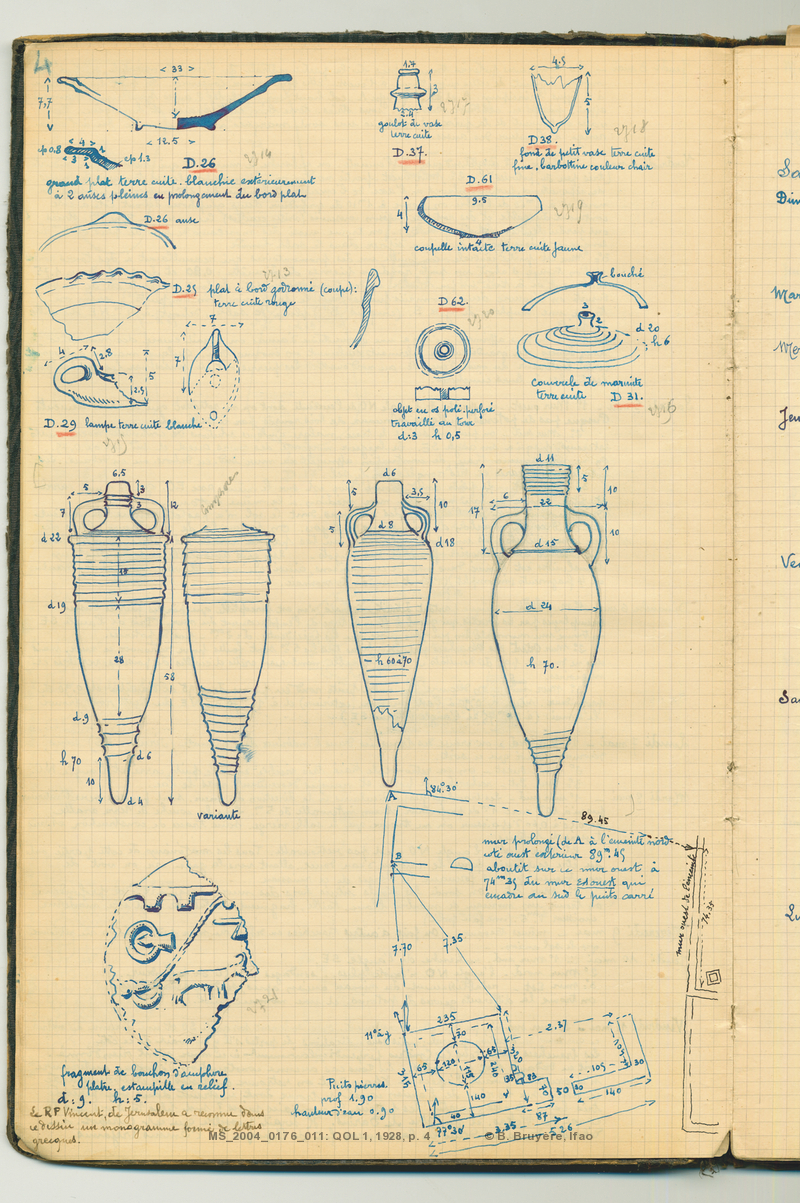 4
< 33 >
7,7
< 12.5 >
ep 0.8
< 4 >
< 3 >
ep 1.3
D.26
grand plat terre cuite. blanchie extérieurement
à 2 anses pleines en prolongement du bord plat
D.26 anse
D.25 plat à bord godronné (coupe):
terre cuite rouge
4
2.8
5
2.5
7
7
D.29 lampe terre cuite blanche
1.7
3
2.4
goulot de vase
terre cuite
D.37.
4.5
5
D38.
fond de petit vase terre cuite
fine. barbotine couleur chair
D.61
9.5
4
coupelle intacte terre cuite jaune
D 62.
objet en os poli. perforé
travaillé au tour
d:3 h 0,5
bouché
3
2
d 20
h 6
couvercle de marmite
terre cuite D 31.
6.5
5
3
3
7
12
d 22
d 19
28
58
d.9
d 6
h 70
10
d 4
variante
d 6
5
3,5
10
5
d 8
d 18
h 60 à 70
d 11
5
10
6
22
17
10
d 15
d 24
h 70.
A
84°30'
89.45
B
D
mur prolongé (de A à l'enceinte nord
coté ouest extérieur 89m.45
aboutit sur ce mur ouest, à
74m35 du mur Est ouest qui
encadre au sud le puits carré
mur ouest de l'enceinte
74.35
7.70
7.35
235
70
2.37
65
120
65
240
345
140
40
35
83
70
50
105
30
140
87
77°30'
3.35
5.26
Puits pierres.
prof 1.90
hauteur d'eau 0.90
fragment de bouchon d'amphore
platre, estampille en relief.
d: 9. h: 5.
Le R P Vincent, de Jerusalem a reconnu dans
ce dessin un monogramme formé de lettres
grecques.
MS_2004_0176_011: QOL 1, 1928, p. 4 © B. Bruyère, Ifao